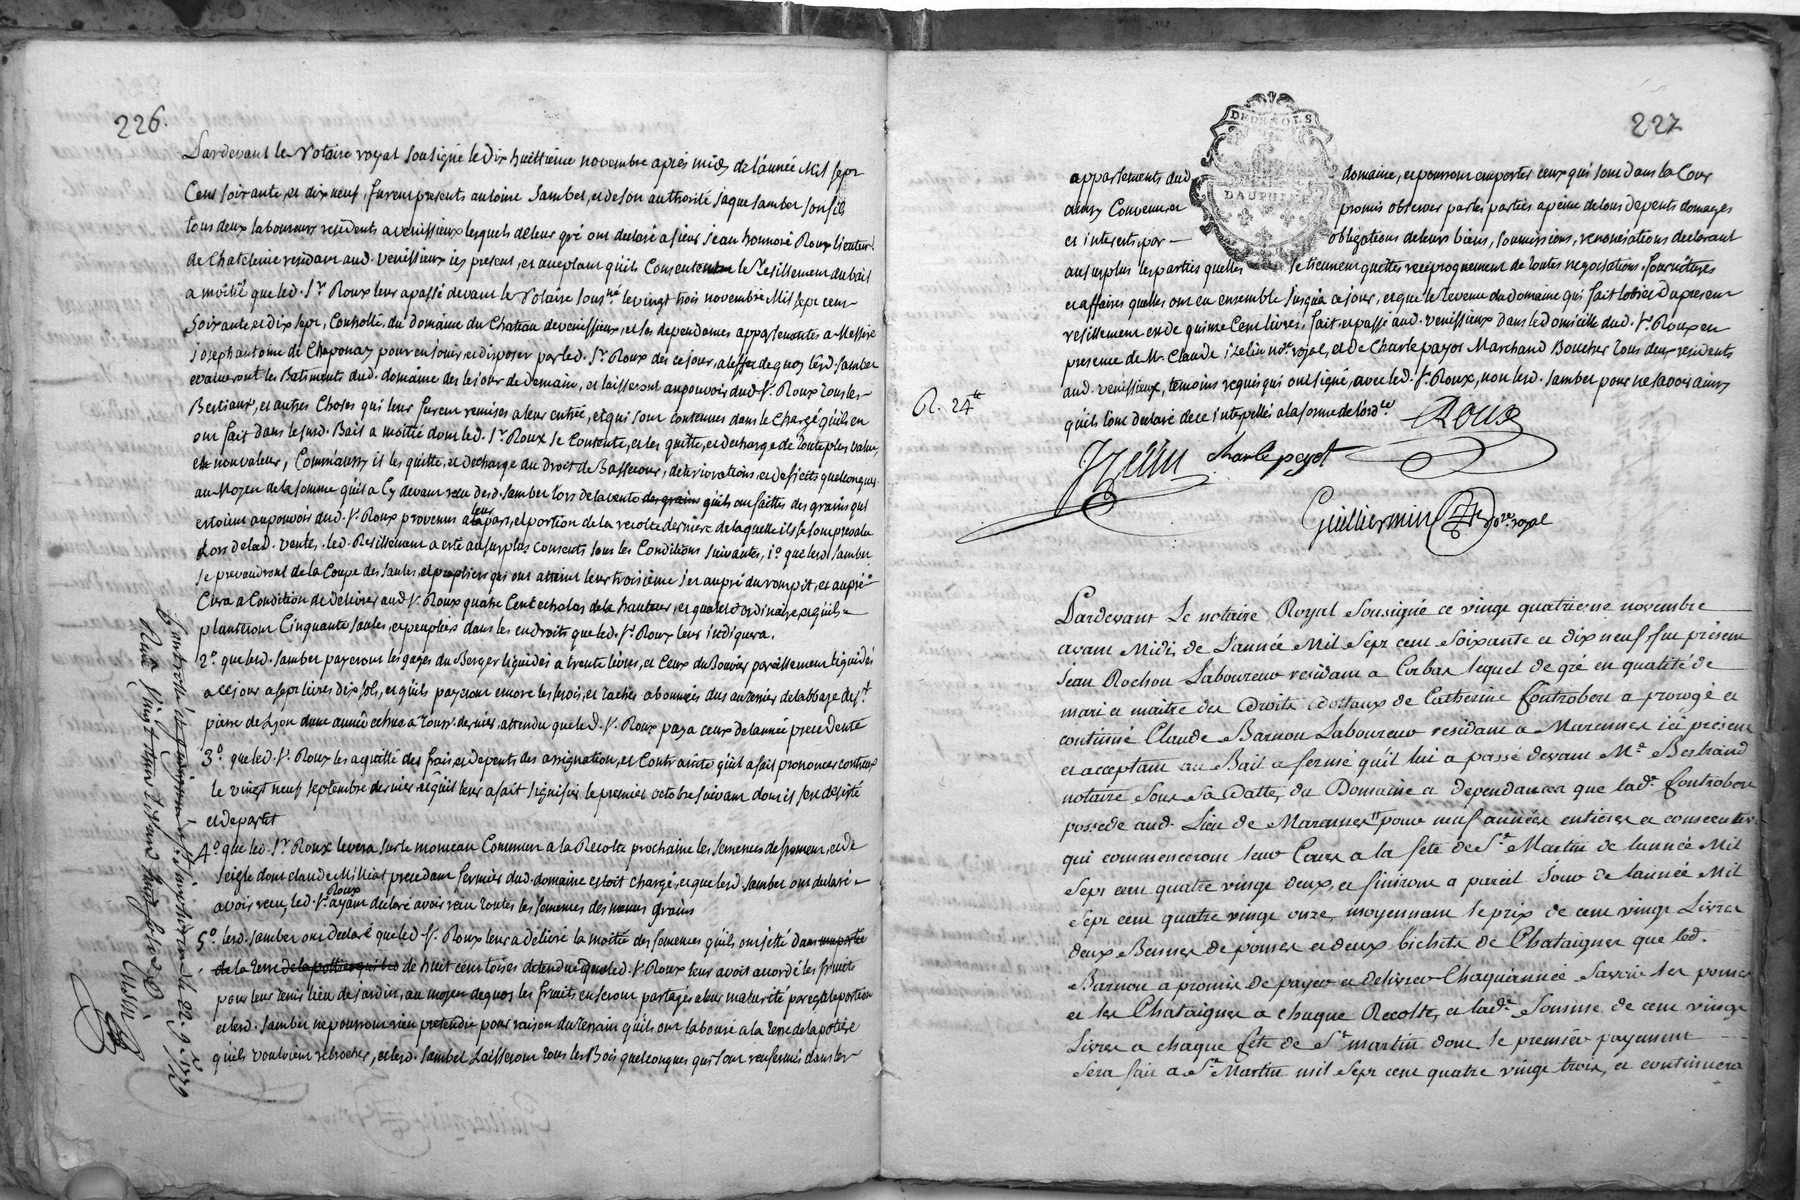 226.
Pardevant le Notaire royal soussigné le Dix huittième novembre après midy de l'année Mil sept
Cent soixante et dix neuf, furent presents antoine Jambet, et de son authorité jaque Jambet son fils
tous deux laboureurs residents a venissieux lesquels de leur gré ont declaré a sieur jean honnoré Roux lieuten.t
de Chatelenie residant aud. venissieux icy present, et acceptant qu'ils Consentent le Resillement du bail
a moitié que led. S.r Roux leur a passé devant le Notaire sous.né le vingt trois novembre Mil sept cent
Soixante et Dix sept, Controllé, du domaine du Chateau de venissieux, et ses dependances appartenantes a Messire
joseph antoine de Chaponay pour en jouir, et disposer par led. S.r Roux dès ce jour, a l'effet de quoy lesd. Jambet
evacueront les Batiments dud. domaine dès le jour de Demain, et laisseront au pouvoir dud. S.r Roux tous les
Bestiaux, et autres Choses qui leur furent remises a leur entrée, et qui sont contenues dans le Chargé qu'ils en
ont fait dans le susd. Bail a moitié dont led. S.r Roux se Contente, et les quitte, et decharge de toute plus value,
et non valeur, Comm'aussy il les quitte, et decharge du Droit de Bassecour, deteriorations, et deficits quelconques
au Moyen de la somme qu'il a Cy devant reçu desd. Jambet lors de la vente des grains qu'ils ont faittes des grains qui
etoient au pouvoir dud. S.r Roux provenus a leur part, et portion de la recolte derniere de laquelle ils se sont prevalu
Lors de lad. vente. led. Resillement a eté au surplus consenti sous les Conditions suivantes, 1.o que lesd. Jambet
se prevaudront de la Coupe des saules, et peupliers qui ont atteint leur troisième au pré du rompit, et au pré
Cura a Condition de delivrer aud. S.r Roux quatre Cent echalas de la hauteur, et qualité ordinaire, et qu'ils
planteront Cinquante saules, et peupliers dans les endroits que led. S.r Roux leur indiquera.
2.o que lesd. Jambet payeront les gages du Berger liquidés a trente livres, et Ceux du Bouvier pareillement liquidés
a ce jour a sept livres dix sols, et qu'ils payeront encore les et taches abonnées dus au fermier de l'abbaye de S.t
pierre de Lyon d'une année echue a Toussts. dernier, attendu que led. S.r Roux paya ceux de l'année precedente
3.o que led. S.r Roux les a quitté des frais, et depents des assignation, et Contrainte qu'il a fait prononcer contr'eux
le vingt neuf septembre dernier et qu'il leur a fait signifier le premier octobre suivant dont il s'en desisté
et departit
4.o que led. S.r Roux levera sur le monceau Commun a la Recolte prochaine les semences de froment, et de
seigle dont claude Milliat precedant fermier dud. domaine etoit chargé, et que lesd. Jambet ont declaré
avoir reçu, led. S.r Roux ayant declaré avoir reçu toutes les semences des menus grains
5.o lesd. Jambet ont declaré que led. S.r Roux leur a delivré la moitié des semences qu'ils ont jetté dans
de la terre de huit cent toises detendue que led. S.r Roux leur avoit accordé les fruits
pour leur tenir lieu de jardin, au moyen de quoy les fruits en seront partagés a leur maturité par egale portion
et lesd. Jambet ne pourront rien pretendre pour raison du terrain qu'ils ont labouré a la terre de la potiere
qu'ils vouloient rebrocher, et lesd. Jambet Laisseront tous les Bois quelconques qui sont renfermé dans les
22. 9.bre 1779
Reçu vingt
227
DEUX SOLS
DAUPHINÉ
appartements dud. domaine, et pourront emporter ceux qui sont dans la Cour
ainsy Convenu et promis observer par les parties a peine de tous depents domages
et interets, par obligations de leurs biens, soumissions, renonciations declarant
au surplus les parties qu'elles se tiennent quittes reciproquement de toutes negociations fournitures
et affaires qu'elles ont eu ensemble jusqu'a ce jour, et que le Revenu du domaine qui fait l'objet du present
resillement est de quinze Cent livres, fait, et passé aud. venissieux dans le domicille dud. S.r Roux en
presence de M.e Claude jzelin no.re royal, et de Charle payet Marchand Boucher tous deux residents
aud. venissieux, temoins requis qui ont signé, avec led. S.r Roux, non lesd. Jambet pour ne sçavoir ainsy
qu'ils l'ont declaré de ce interpellés a la forme de l'ord.ce
R. 24
Roux
Jzelin charle payet
Guilliermin no.re royal
Pardevant Le notaire Royal Sousigné ce vingt quatrieme novembre
avant Midi, de L'année Mil Sept cent Soixante et dix neuf, fut présent
jean Rochon Laboureur residant a Corbas lequel de gré en qualité de
mari et maitre des Droits Dottaux de Catherine Fontrobert a prorogé et
continué Claude Barnou Laboureur residant a Marennes ici présent
et acceptant au Bail a fermé qu'il lui a passé devant M.e Bertrand
notaire Sous Sa Datte, du Domaine et dependances que lad.e Fontrobert
possede aud. Lieu de Marennes pour neuf années entieres et consecutives
qui commenceront leur Cours a la fête de S.t Martin de l'année Mil
Sept cent quatre vingt deux, et finiront a pareil Jour de l'année Mil
Sept cent quatre vingt onze, moyennant le prix de cent vingt Livres
deux Bennes de pomes et deux bichets de Chataignes que led.
Barnou a promis de payer et delivrer Chaqu'année Savoir les pomes
et les Chataignes a chaque Recolte, et lad.e Somme de cent vingt
Livres a chaque fête de S.t martin dont le premier payement
Sera fait a S.t Martin mil Sept cent quatre vingt trois, et continuera